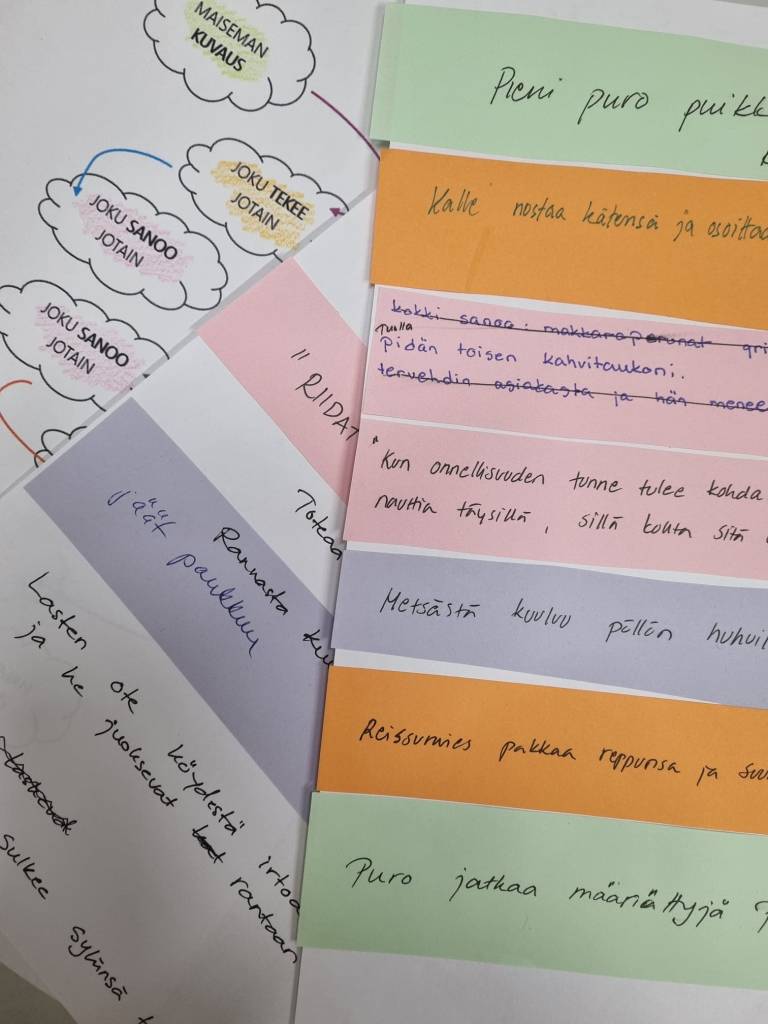 MAISEMAN
KUVAUS
JOKU TEKEE
JOTAIN
JOKU SANOO
JOTAIN
JOKU SANOO
JOTAIN
"RIIDAT
Toteaa
Rannasta
jäät paukkuu
Lasten ote köydestä irtoa
ja he juoksevat rantaan
Sulkee sylinsä
Pieni puro puikk
Kalle nostaa kätensä ja osoittaa
kokki sanoo: makkaraperunat gri
Tuolla
Pidän toisen kahvitaukoni.
tervehdin asiakasta ja hän menee
"Kun onnellisuuden tunne tulee kohda
nauttia täysillä, sillä kohta sitä
Metsästä kuuluu pöllön huhuil
Reissumies pakkaa reppunsa ja suu
Puro jatkaa määrättyjä